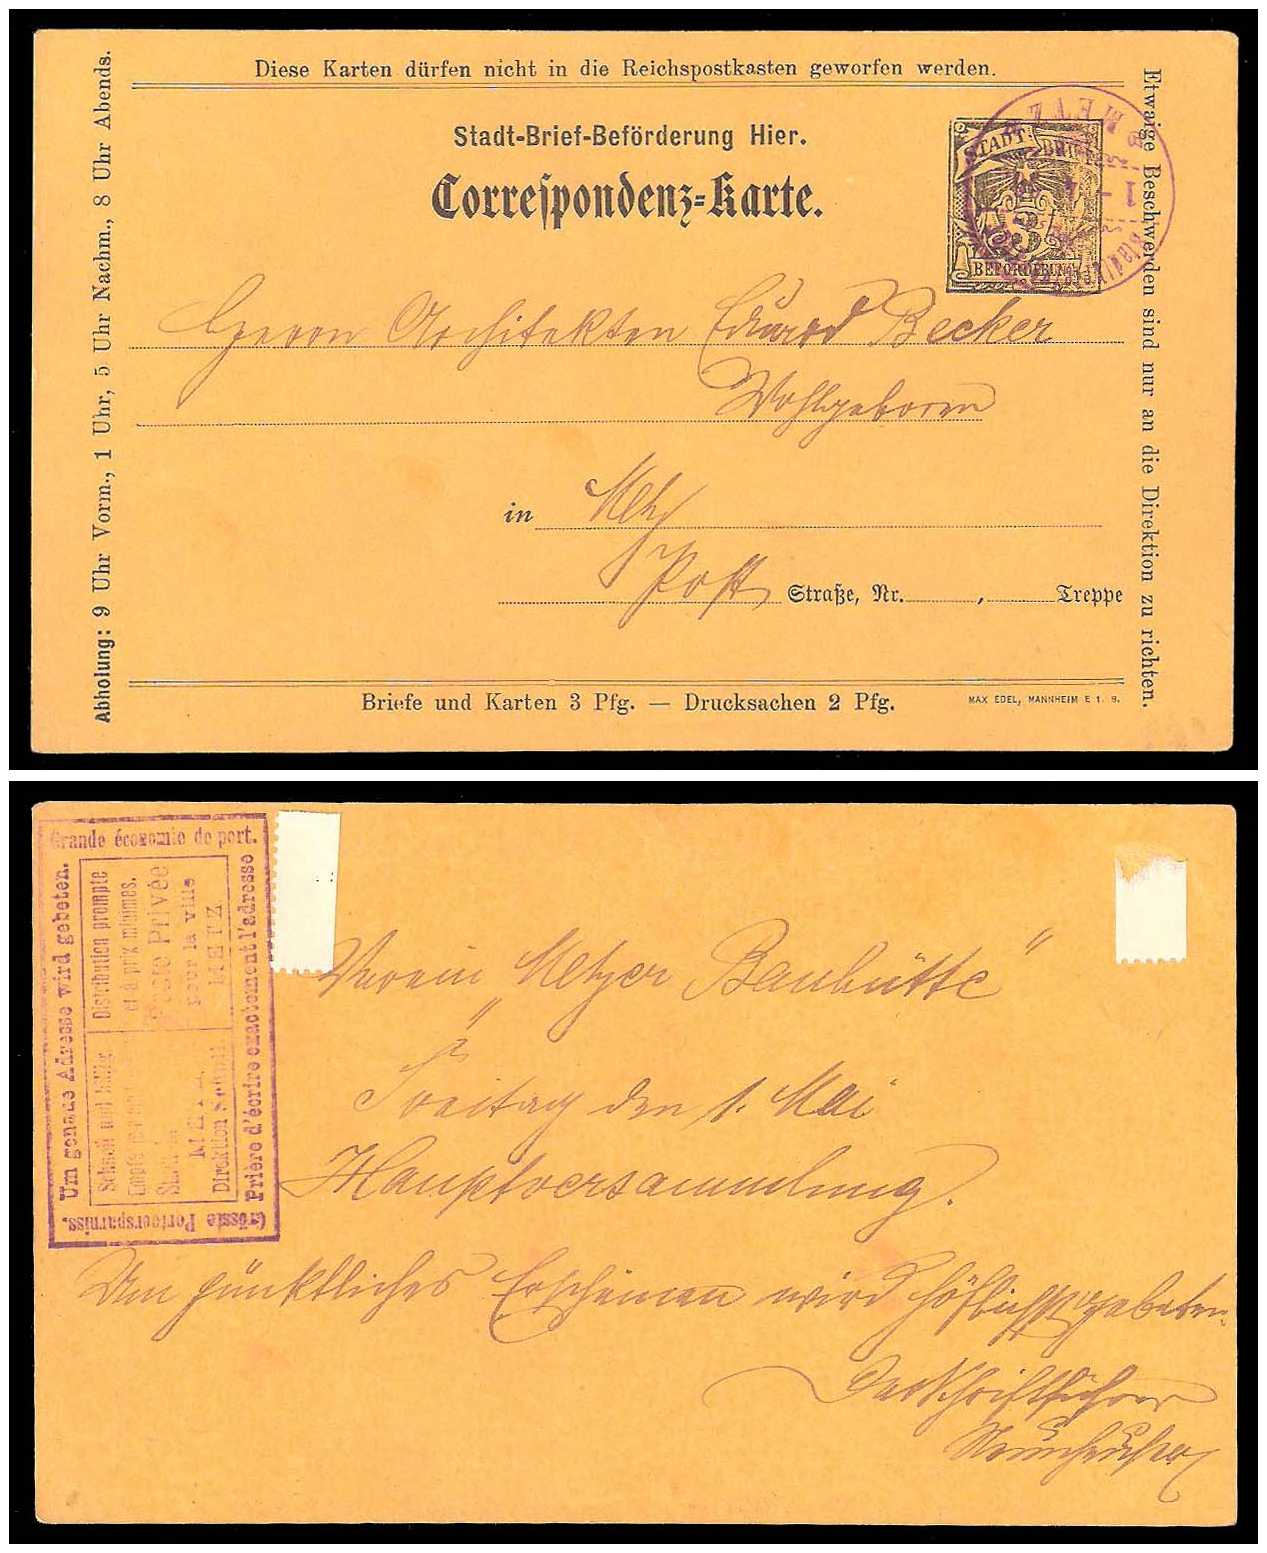 Diese Karten dürfen nicht in die Reichspostkasten geworfen werden.
Abholung: 9 Uhr Vorm., 1 Uhr, 5 Uhr Nachm., 8 Uhr Abends.
Etwaige Beschwerden sind nur an die Direktion zu richten.
Stadt-Brief-Beförderung Hier.
Correspondenz-Karte.
STADT-BRIEF
3
BEFÖRDERUNG
METZ
1
Herrn Architekten Eduard Becker
Wohlgeboren
in Metz
Post Straße, Nr. , Treppe
Briefe und Karten 3 Pfg. — Drucksachen 2 Pfg.
MAX EDEL, MANNHEIM E 1. 8.
Grande économie de port.
Um genaue Adresse wird gebeten.
Distribution prompte
et à prix minimes.
Poste Privée
pour la ville
METZ
Schnell und billig
METZ
Direktion
Prière d'écrire exactement l'adresse
Grösste Portoersparniss.
Verein „Metzer Bauhütte“
Freitag den 1. Mai
Hauptversammlung.
Um pünktliches Erscheinen wird höflichst gebeten.
Der Schriftführer